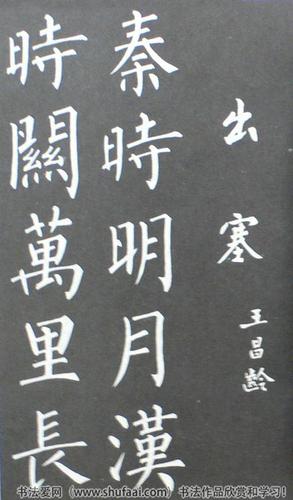 出塞
王昌齡
秦時明月漢
時關萬里長
书法爱网(www.shufaai.com)书法作品欣赏和学习!